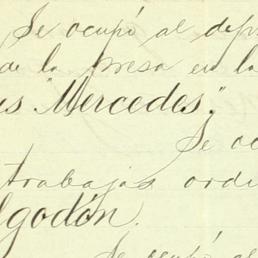 Se ocupó al dep
de la presa en la
us "Mercedes".
Se oc
trabajos orde
lgodón.
Se ocupó al